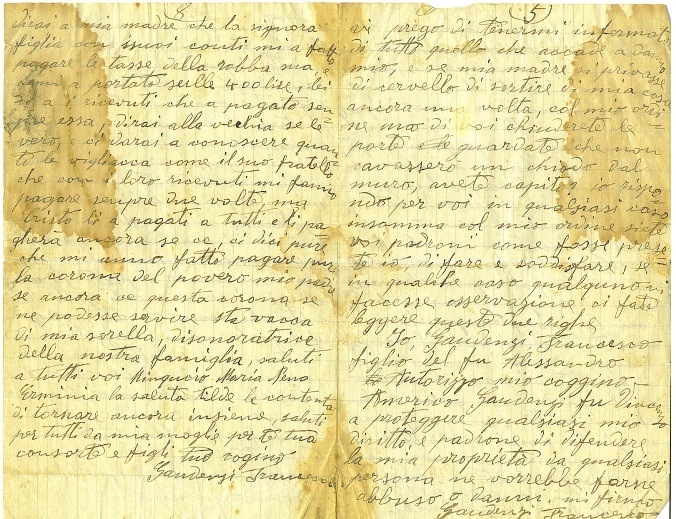 dirai a mia madre che la signora
figlia con i suoi conti mi a fatto
pagare le tasse della robba ma e
a portato sulle 400 lire, lei
a i ricevuti che a pagato sem
pre essa, dirai alla vechia se le
vero, e ci darai a conoscere quan
to le vigliaca come il suo fratello
che con i loro ricevuti mi fanno
pagare sempre due volte, ma
Cristo li a pagati a tutti e li pa
ghera ancora se ce, ci dici pure
che mi anno fatto pagare pure
la corona del povero mio padre
se ancora ce questa corona se
ne podesse servire sta vacca
di mia sorella, disonoratrice
della nostra famiglia, saluti
a tutti voi Ningucio Maria Nena
Erminia la saluta Tilde le contenta
di tornare ancora insieme, saluti
per tutti da mia moglie per te tua
consorte e figli tuo cogino
Gaudenzi Francesco
5)
vi prego di tenermi informato
di tutto quello che accade a danno
mio, e se mia madre si provasse
di cervello di sortire di mia casa
ancora una volta, col mio ordi
ne uno di voi chiuderete le
porte e guardate che non
cavassero un chiodo dal
muro, avete capito? io rispon
do per voi in qualsiasi caso
insomma col mio ordine siete
voi padroni come fosse presen
te io, di fare e soddisfare, se
in qualche caso qualguno vi
facesse osservazione ci fate
leggere queste due righe
Io, Gaudenzi Francesco
figlio del fu Alessandro
Autorizzo mio coggino
Americo Gaudenzi fu Vincenzo
a proteggere qualsiasi mio
diritto, e padrone di difendere
la mia proprietà da qualsiasi
persona ne vorrebbe farne
abbuso o danni. mi firmo
Gaudenzi Francesco